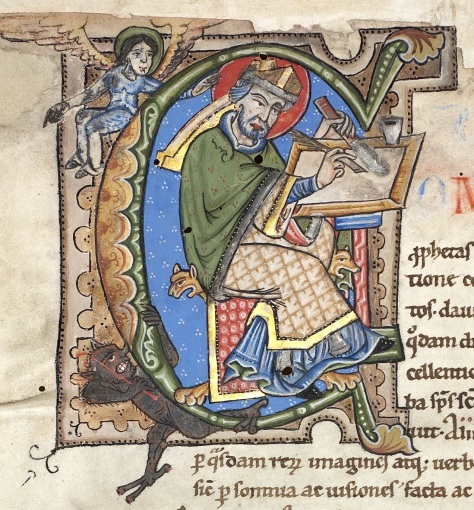 OM
ꝓphetas
tione co
tos. dau
qͦdam di
cellentio
ba sp̄s sc̄
uit. Alii
ꝑ qͣsdam reꝝ imagines atq; uerb
sic̄ ꝑ somnia ac uisiones facta ac